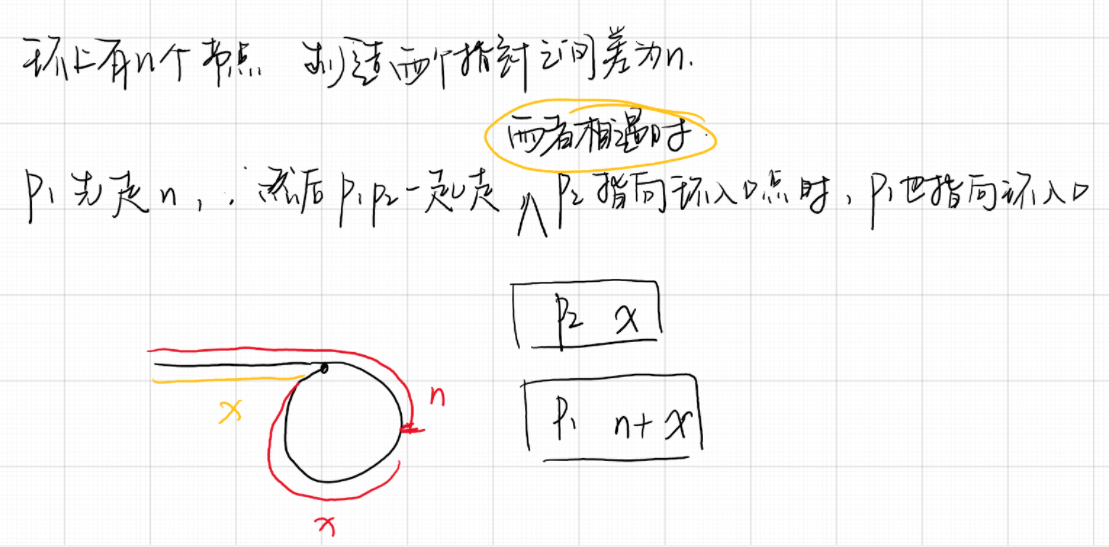 环上有n个节点 制造两个指针之间差为n.
两者相遇时.
P1 先走 n, 然后 P1 P2 一起走 P2 指向环入口点时, P1也指向环入口
P2 x
n
x
P1 n+x
x